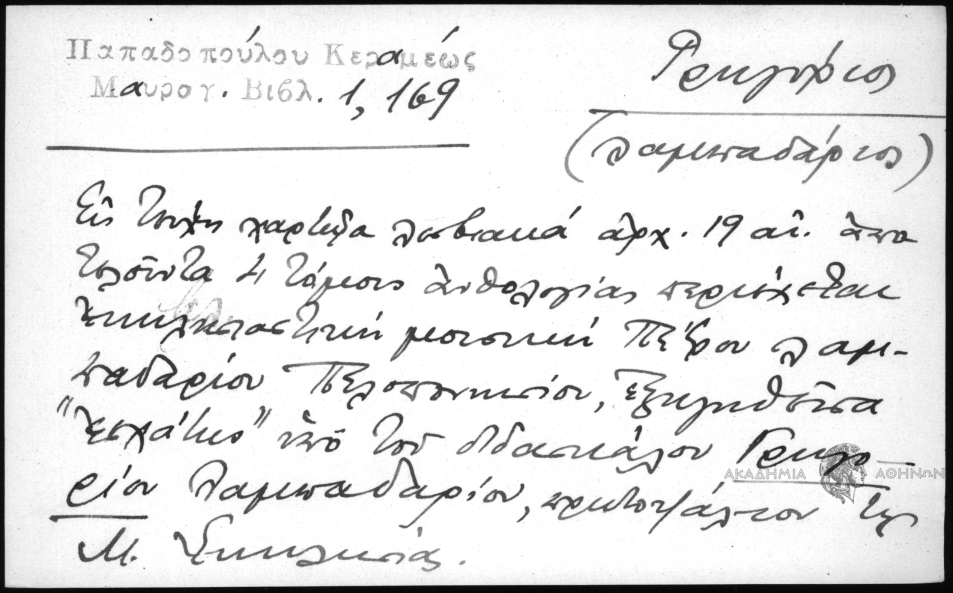 Παπαδοπούλου Κεραμέως
Μαυρογ. Βιβλ. 1, 169
Γρηγόριος
(Λαμπαδάριος)
Εἰς τεύχη χαρτῷα λεσβιακά ἀρχ. 19 αἰ. ἀπο
τελοῦντα 4 τόμους ἀνθολογίας περιέχεται
ἐκκλησιαστική μουσική Πέτρου Λαμ-
παδαρίου Πελοποννησίου, ἐξηγηθεῖσα
"ἐσχάτως" ὑπό τοῦ διδασκάλου Γρηγο-
ρίου Λαμπαδαρίου, πρωτοψάλτου τῆς
Μ. Ἐκκλησίας.
ΑΚΑΔΗΜΙΑ ΑΘΗΝΩΝ